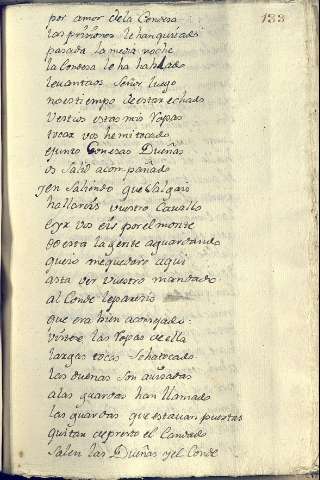 133
por amor dela Condesa
las prisiones le han quitado
pasada la media noche
la Condesa le ha hablado
levantaos Señor luego
no es tiempo de estar echado
Vestios estas mis ropas
tocar vos he mi tocado
e junto Con esas Dueñas
os salid acompañado
y en Saliendo que Salgais
hallareis vuestro Cavallo
el monte
do esta la gente aguardando
quero me quedare aqui
asta ver vuestro mandado
al Conde le parecio
que era bien aconsejado:
vistese las ropas de ella
largas tocas Se ha tocado
las duenas son avisadas
a las guardas han llamado
las guardas que estavan puertas
quitan de presto el Candado
salen las Dueñas y el Conde